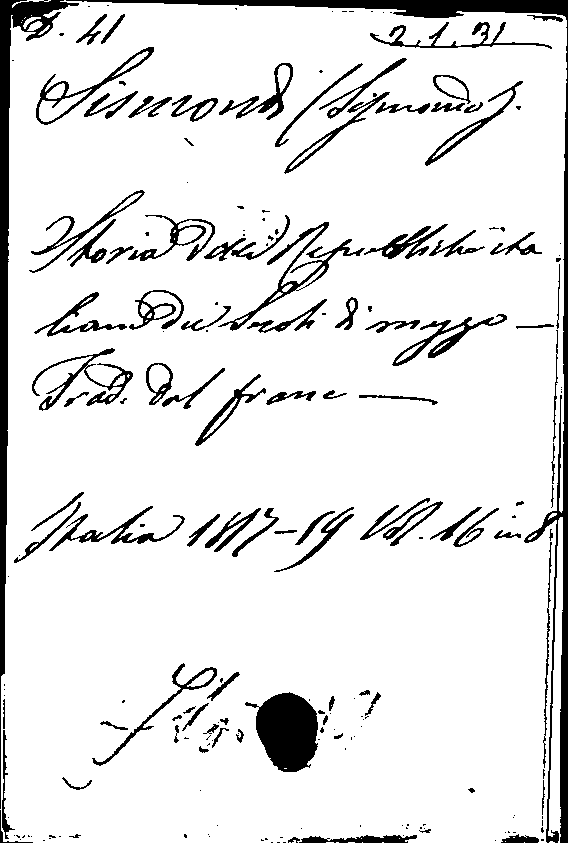 D. 41 2.1.31
Sismondi (Sismondo).
Storia delle Repubbliche ita
liane dei Secoli di mezzo —
Trad. dal franc —
Italia 1817-19 Vol. 16 in 8